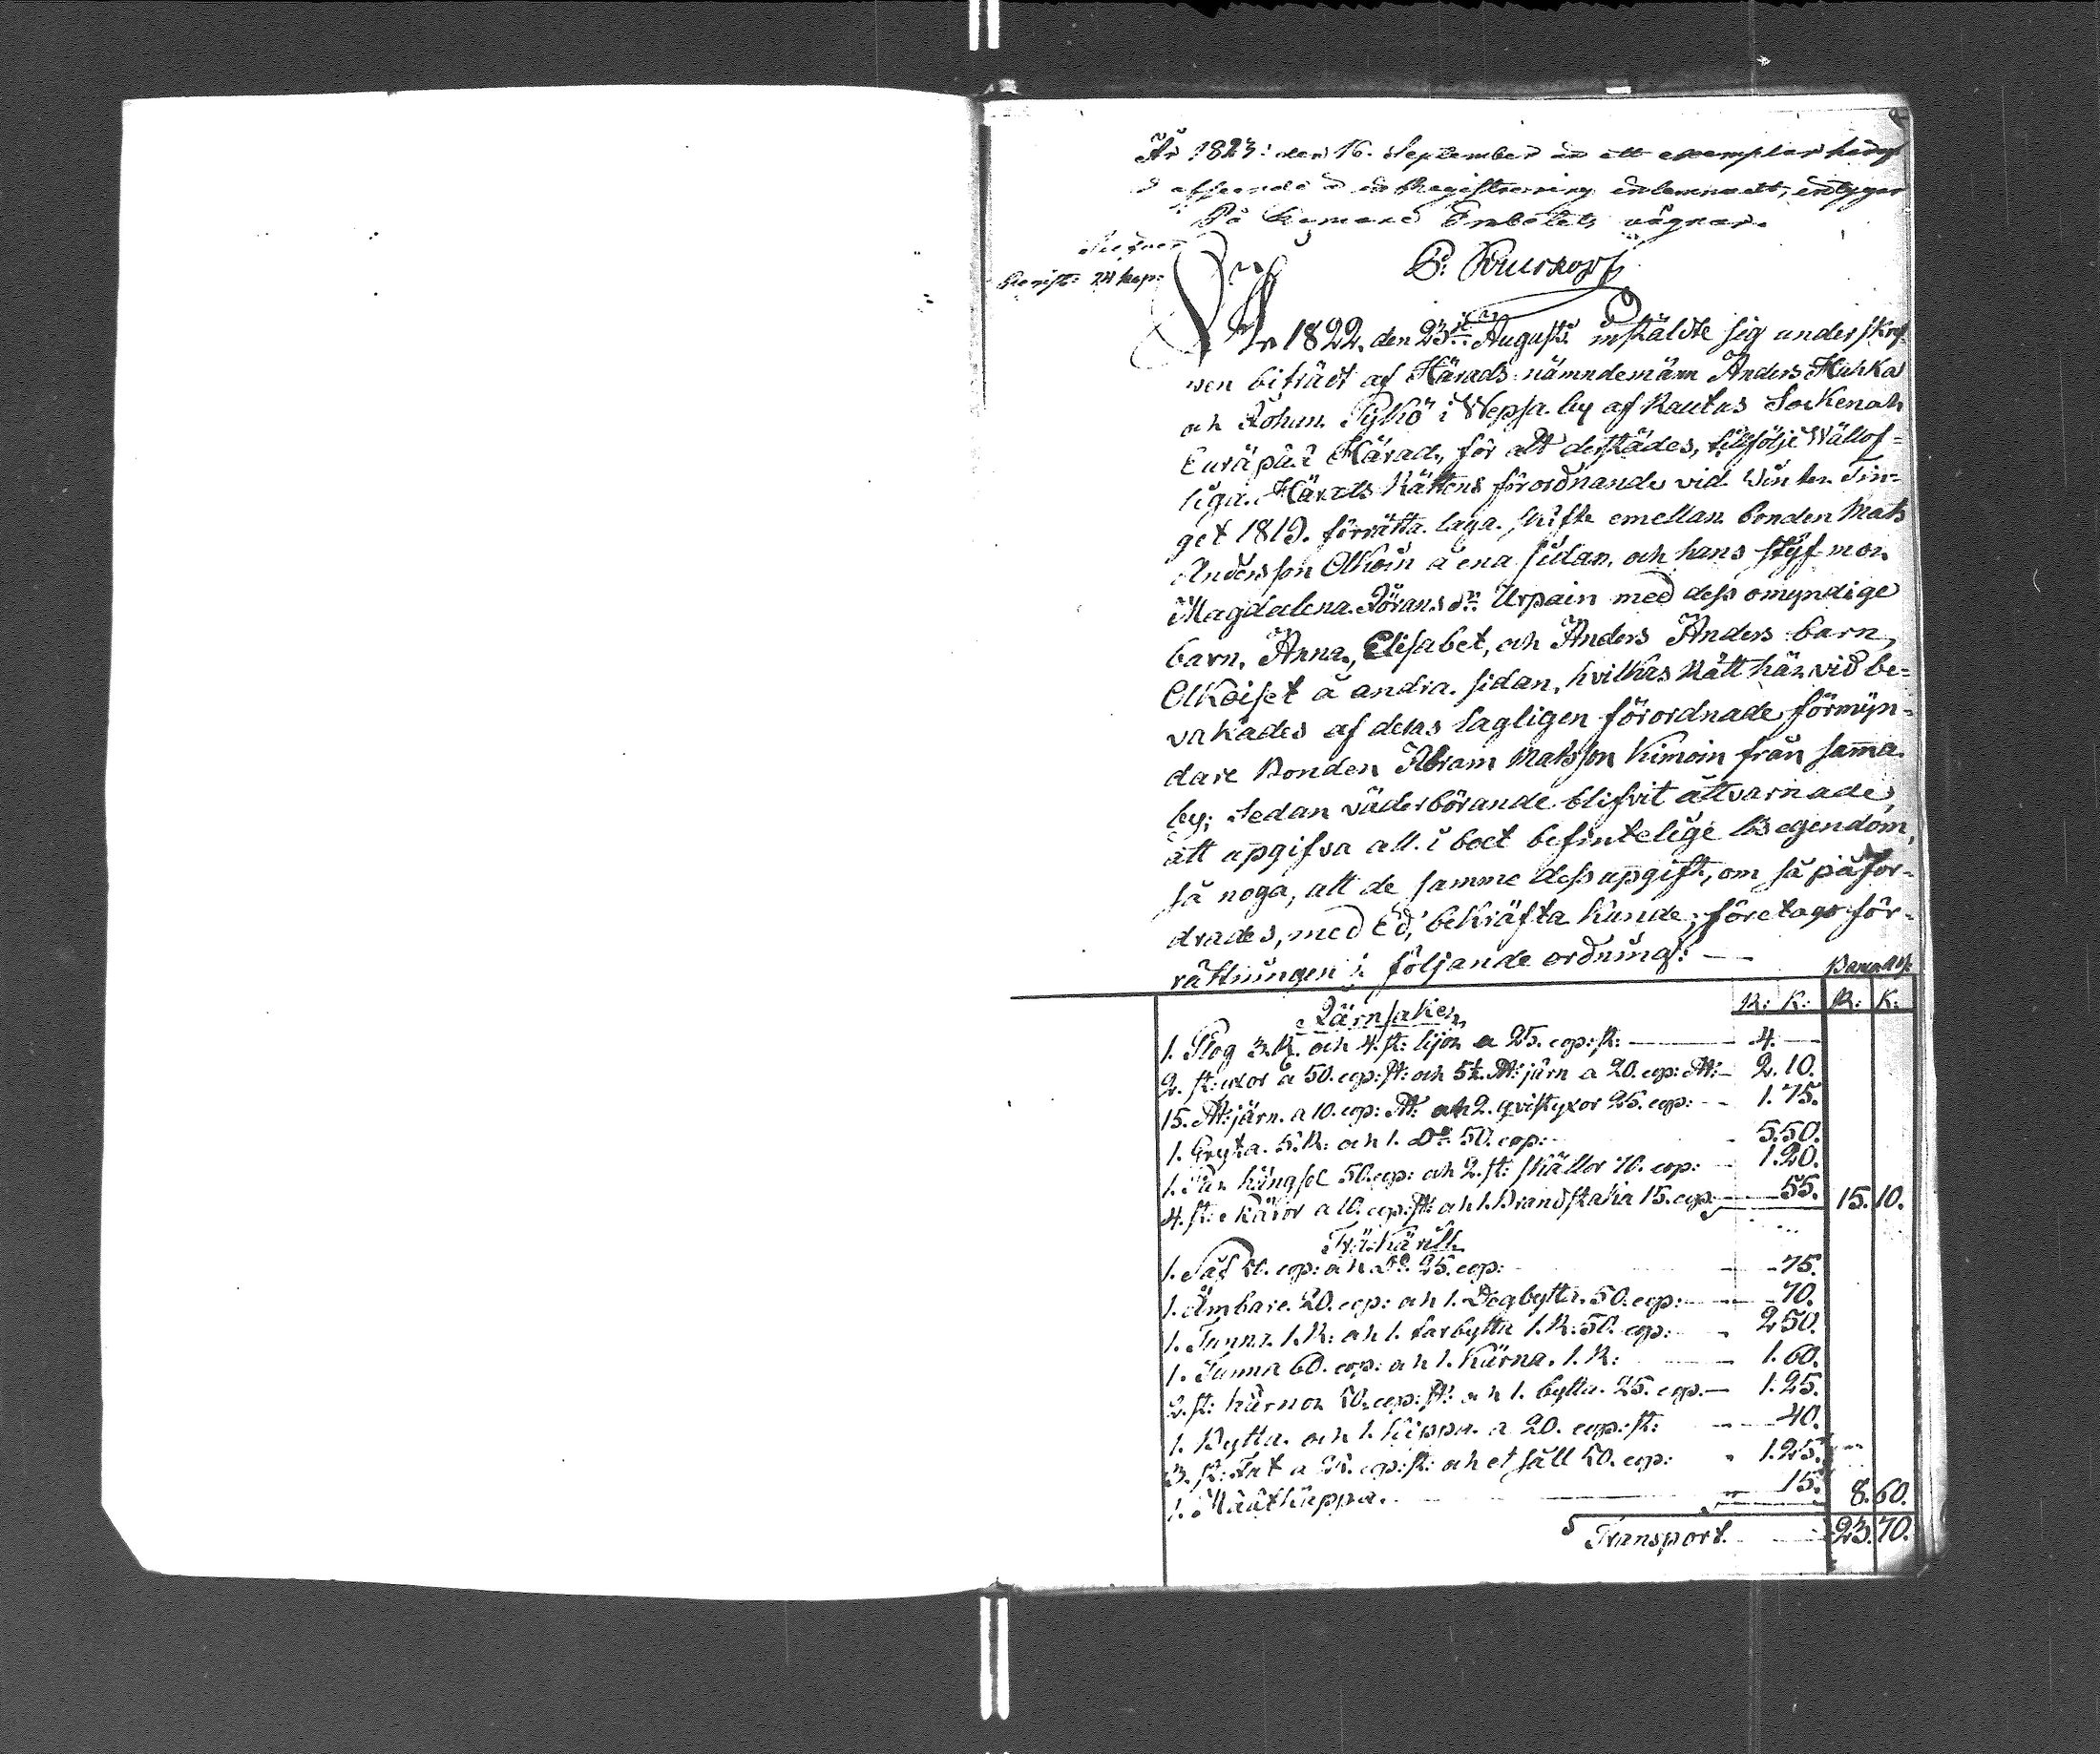 År 1823: den 16. September ett exemplar häraf
Registrering inlemnadt, intygar
På Embetets vägnar.
År 1822. den 23 Augusti instälde sig underskref-
ven biträdt af Härads nämndemänn Anders Hukka
och Johan Pykö i Wepsa by af Rautus Socken och
Euräpää Härad, för att derstädes, tillfölje Wällof-
liga Härads Rättens förordnande vid Winter Tin-
get 1819. förrätta laga skifte emellan bonden Mats
Andersson Olkoin å ena sidan, och hans styfmor
Magdalena Jörans dr Urpain med dess omyndige
barn, Anna, Elisabet, och Anders Anders barn,
Olkoiset å andra sidan, hvilkas Rätt härvid be-
vakades af deras lagligen förordnade förmyn-
dare Bonden Abram Matsson Kimoin från samma
by; Sedan väderbörande blifvit åttvarnade,
att upgifva all i boet befintelige lösegendom,
så noga, att de samme dess upgift, om så påfor-
drades, med Ed, bekräfta kunde; företags för-
rättningen i följande ordning: —
R: K: R: K:
Järnsaker
1. Plog 3. R. och 4. st: lijor a 25. cop: st: — 4. —
2. st: yxor a 50. cop: st: och 5½ ℔: järn a 20. cop: ℔: — 2. 10.
15. ℔: järn a 10. cop: ℔: och 2. qvistyxor 25. cop: — 1. 75.
1. Gryta 5. R: och 1. Do 50. cop: — 5. 50.
1. Par hängsel 50. cop: och 2. st: skällor 70. cop: — 1. 20.
4. st: skäror a 10. cop: st: och 1. Brandstaka 15. cop: — 55. 15. 10.
Träkärill
1. Så 50. cop: och Do 25. cop: — 75.
1. Ämbare 20. cop: och 1. Degbytta 50. cop: — 70.
1. Tunna 1. R: och 1. karbytta 1. R: 50. cop: — 2. 50.
1. Tunna 60. cop: och 1. Kärna 1. R: — 1. 60.
2. st: kärnor 50. cop: st: och 1. bytta 25. cop: — 1. 25.
1. Bytta och 1. Kippa a 20. cop: st: — 40.
3. st: Fat a 25. cop: st: och et såll 50. cop: 1. 25.
1. 15. 8. 60.
Transport 23. 70.